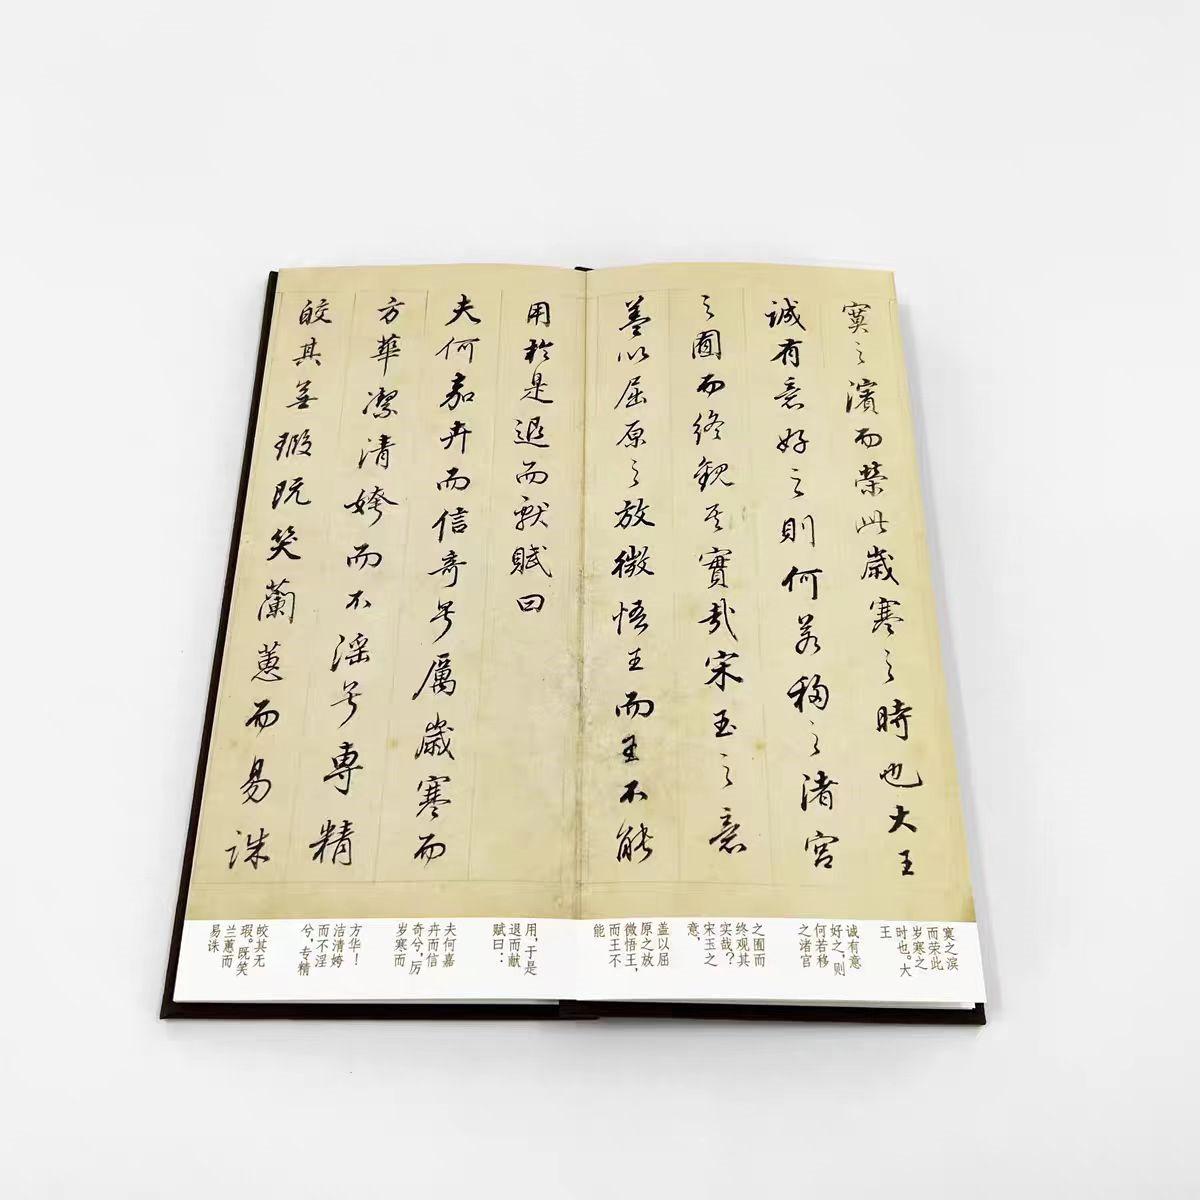 寞之濱而榮此歲寒之時也大王
誠有意好之則何若移之渚宮
之囿而終觀其實哉宋玉之意
蓋以屈原之放微悟王而王不能
用於是退而獻賦曰
夫何嘉卉而信奇兮厲歲寒而
方華潔清姱而不淫兮專精
皎其無瑕既笑蘭蕙而易誅
寞之滨
而荣此
岁寒之
时也。大
王
诚有意
好之，则
何若移
之渚宫
之囿而
终观其
实哉？
宋玉之
意，
盖以屈
原之放
微悟王，
而王不
能
用，于是
退而献
赋曰：
夫何嘉
卉而信
奇兮，厉
岁寒而
方华！
洁清姱
而不淫
兮，专精
皎其无
瑕。既笑
兰蕙而
易诛